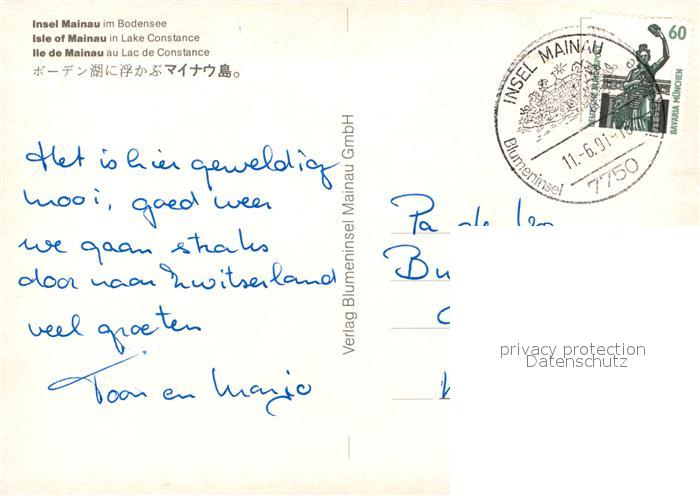 Insel Mainau im Bodensee
Isle of Mainau in Lake Constance
Ile de Mainau au Lac de Constance
ボーデン湖に浮かぶマイナウ島。
Het is hier geweldig
mooi, goed weer
we gaan straks
door naar Zwitserland
veel groeten
Toon en
Verlag Blumeninsel Mainau GmbH
INSEL MAINAU
11.-6.91-18
Blumeninsel
7750
60
DEUTSCHE BUNDESPOST
BAVARIA MÜNCHEN
Pa de
Bu
privacy protection
Datenschutz